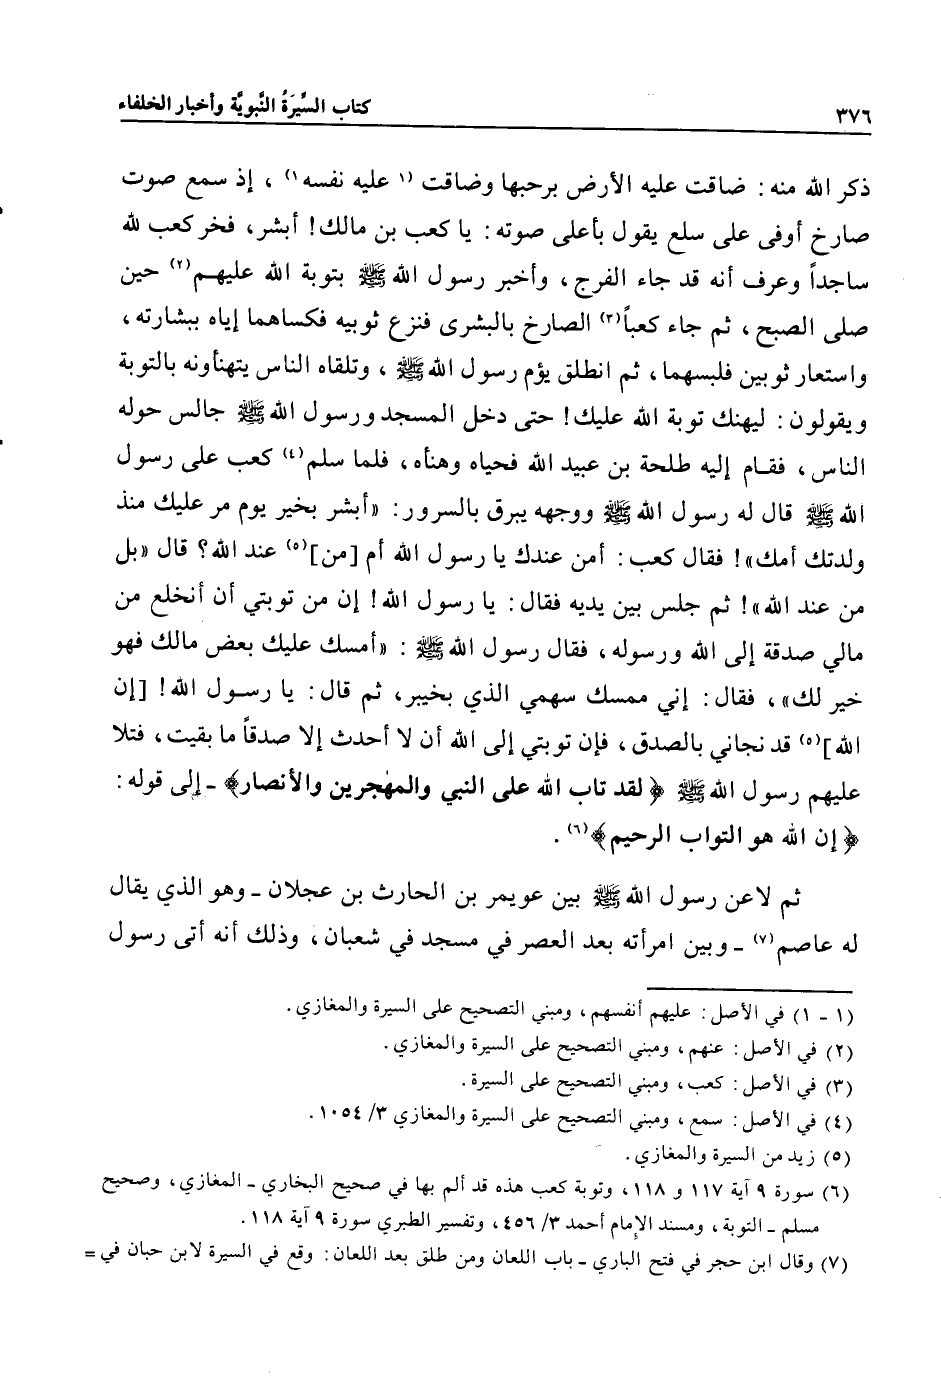 ٣٧٦
كتاب السِّيرَةُ النَّبويَّة وأخبار الخلفاء
ذكر الله منه: ضاقت عليه الأرض برحبها وضاقت (١ عليه نفسه ١)، إذ سمع صوت
صارخ أوفى على سلع يقول بأعلى صوته: يا كعب بن مالك! أبشر، فخر كعب لله
ساجداً وعرف أنه قد جاء الفرج، وأخبر رسول الله ﷺ بتوبة الله عليهم(٢) حين
صلى الصبح، ثم جاء كعباً(٣) الصارخ بالبشرى فنزع ثوبيه فكساهما إياه ببشارته،
واستعار ثوبين فلبسهما، ثم انطلق يؤم رسول الله ﷺ، وتلقاه الناس يتهنأونه بالتوبة
ويقولون: ليهنك توبة الله عليك! حتى دخل المسجد ورسول الله ﷺ جالس حوله
الناس، فقام إليه طلحة بن عبيد الله فحياه وهنأه، فلما سلم(٤) كعب على رسول
الله ﷺ قال له رسول الله ﷺ ووجهه يبرق بالسرور: «أبشر بخير يوم مر عليك منذ
ولدتك أمك»! فقال كعب: أمن عندك يا رسول الله أم [من](٥) عند الله؟ قال «بل
من عند الله»! ثم جلس بين يديه فقال: يا رسول الله! إن من توبتي أن أنخلع من
مالي صدقة إلى الله ورسوله، فقال رسول الله ﷺ: «أمسك عليك بعض مالك فهو
خير لك»، فقال: إني ممسك سهمي الذي بخيبر، ثم قال: يا رسول الله! [إن
الله](٥) قد نجاني بالصدق، فإن توبتي إلى الله أن لا أحدث إلا صدقاً ما بقيت، فتلا
عليهم رسول الله ﷺ ﴿لقد تاب الله على النبي والمهٰجرين والأنصار﴾ - إلى قوله:
﴿إن الله هو التواب الرحيم﴾(٦).
ثم لاعن رسول الله ﷺ بين عويمر بن الحارث بن عجلان - وهو الذي يقال
له عاصم(٧) - وبين امرأته بعد العصر في مسجد في شعبان، وذلك أنه أتى رسول
(١ - ١) في الأصل: عليهم أنفسهم، ومبني التصحيح على السيرة والمغازي.
(٢) في الأصل: عنهم، ومبني التصحيح على السيرة والمغازي.
(٣) في الأصل: كعب، ومبني التصحيح على السيرة.
(٤) في الأصل: سمع، ومبني التصحيح على السيرة والمغازي ٣/ ١٠٥٤.
(٥) زيد من السيرة والمغازي.
(٦) سورة ٩ آية ١١٧ و ١١٨، وتوبة كعب هذه قد ألم بها في صحيح البخاري - المغازي، وصحيح
مسلم - التوبة، ومسند الإمام أحمد ٣/ ٤٥٦، وتفسير الطبري سورة ٩ آية ١١٨.
(٧) وقال ابن حجر في فتح الباري - باب اللعان ومن طلق بعد اللعان: وقع في السيرة لابن حبان في =